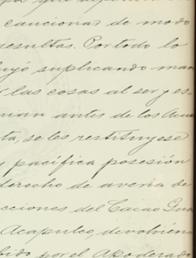 cauciones de modo
resultas. Por todo lo
suplicando man
las cosas al ser y es
antes de los
ta, se les restituyese
y pacífica posesión
derecho de avería de
cciones del Cacao Gua
Acapulco, devolvien
por el Apoderado